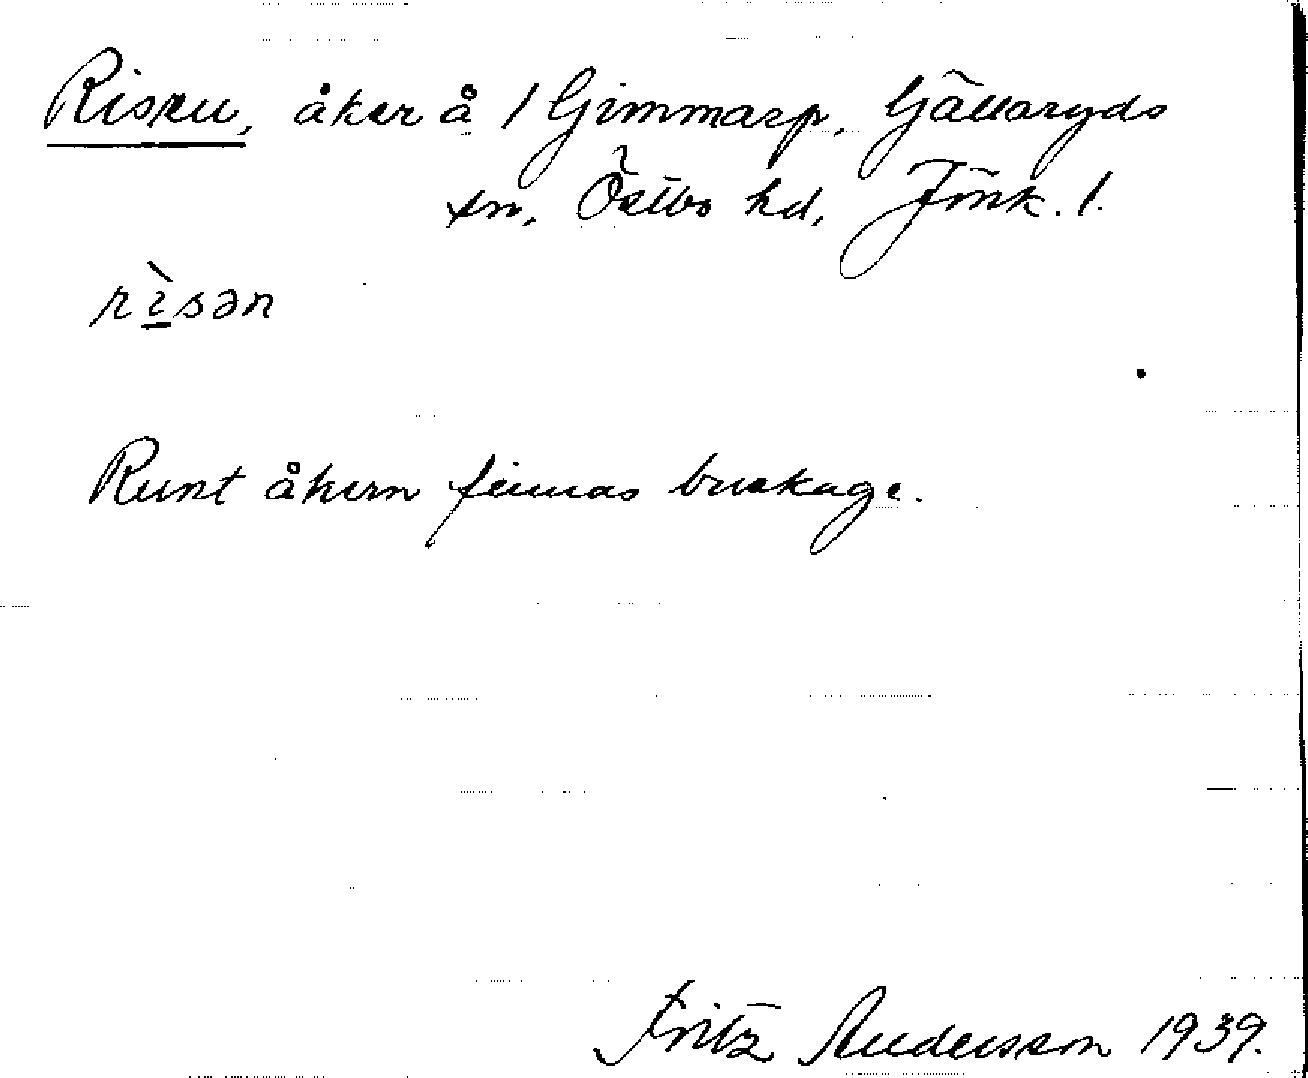 Risen, åker å 1 Gimmarp, Gällaryds
sn, Östbo hd, Jönk. l.
rìsən
Runt åkern finnas buskage.
Fritz Andersson 1939.